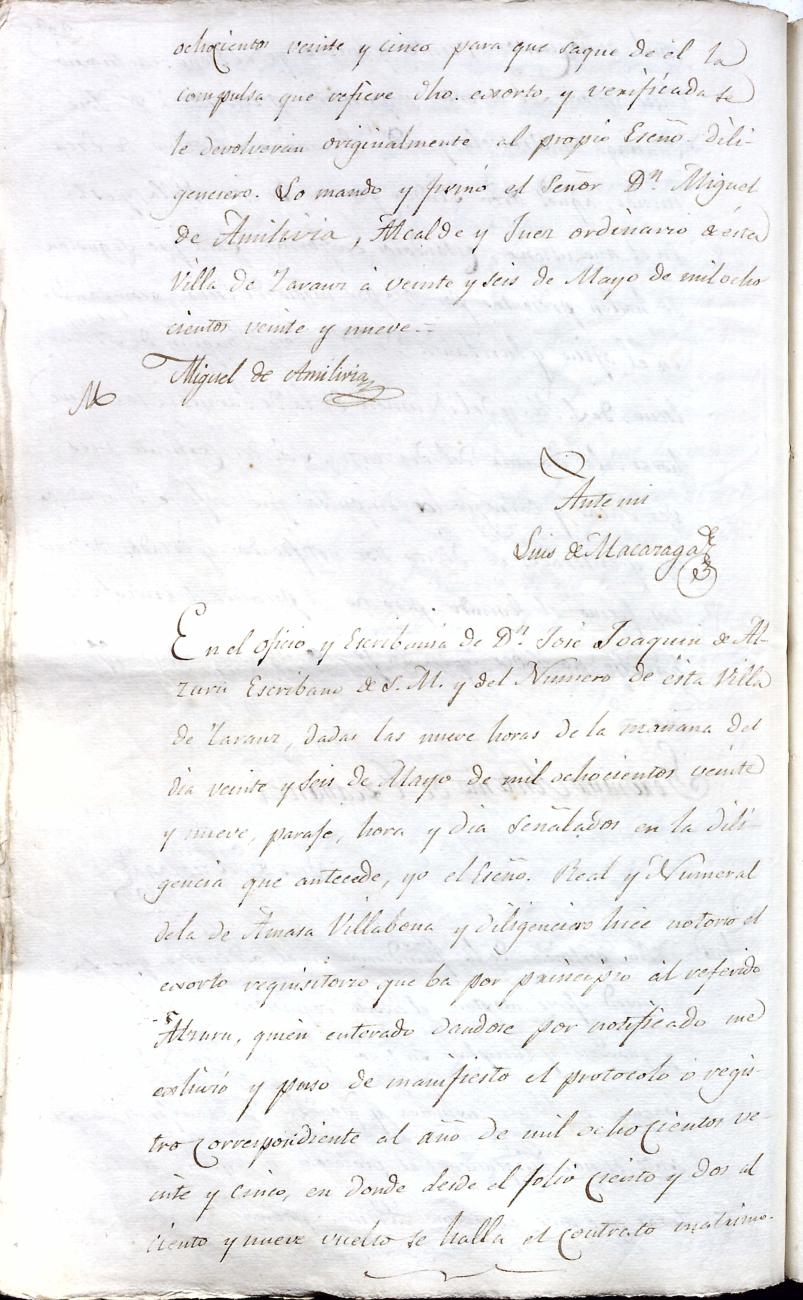 ochocientos veinte y cinco para que saque de el la
compulsa que refiere dho. exorto, y verificada se
le devolveran originalmente al propio Escno. dili-
genciero. Lo mando y firmó el Señor Dn. Miguel
de Amilivia, Alcalde y Juez ordinario de esta
Villa de Zarauz á veinte y seis de Mayo de mil ocho
cientos veinte y nueve.=
Miguel de Amilivia
Ante mi
Luis de Macazaga
En el oficio y Escribania de Dn. José Joaquin de Al-
zuru Escribano de S. M. y del Numero de ésta Villa
de Zarauz, dadas las nueve horas de la mañana del
dia veinte y seis de Mayo de mil ochocientos veinte
y nueve, paraje, hora y dia señalados en la dili-
gencia que antecede, yo el Escño. Real y Numeral
dela de Amasa Villabona y diligenciero hice notorio el
exorto requisitorio que ba por principio al referido
Alzuru, quien enterado dandose por notificado me
exhivió y puso de manifiesto el protocolo ó regis-
tro correspondiente al año de mil ochocientos ve-
inte y cinco, en donde desde el folio ciento y dos al
ciento y nueve vuelto se halla el contrato matrimo-